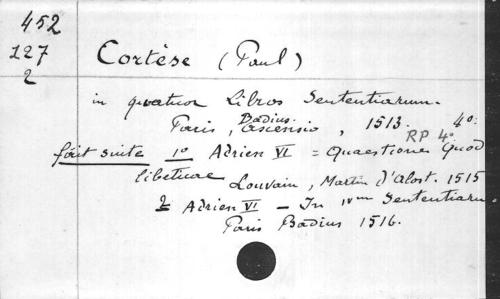 452
127
2
Cortèse (Paul)
in quatuor Libros Sententiarum.
Paris, Badius Ascensio, 1513. 4o:
RP 4o
fait suite 1o Adrien VI = Quaestiones Quod
libeticae Louvain, Martin d'Alost. 1515
2 Adrien VI - In IVum Sententiarum
Paris Badius 1516.